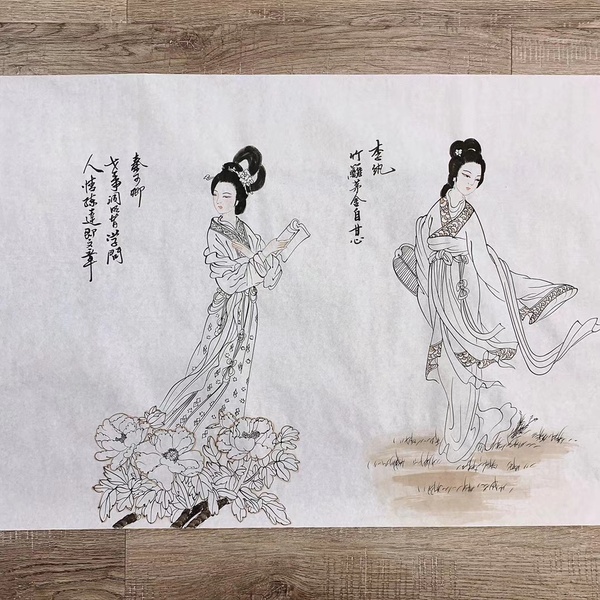 李纨
竹籬茅舍自甘心
秦可卿
世事洞明皆学問
人情練達即文章